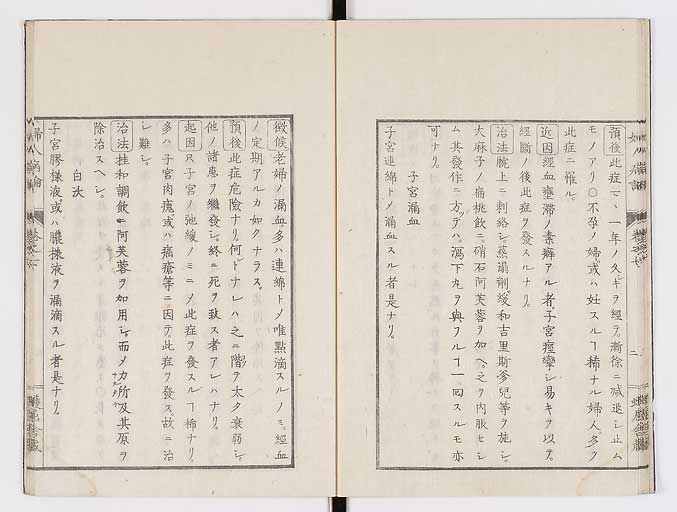 預後此症ハ、一年ノ久キヲ經テ。漸徐ニ減退シ止ム
モノアリ○不孕ノ婦。或ハ妊スルヿ稀ナル婦人。多ク
此症ニ罹ル。
近因經血壅滯ノ素癖アル者。子宮痙攣シ易キヲ以テ。
經斷ノ後此症ヲ發スルナリ。
治法腕上ニ刺絡シ。蒸溻劑緩和吉里斯爹兒等ヲ施シ。
大麻子ノ扁桃飲ニ硝石阿芙蓉ヲ加ヘ。之ヲ内服セシ
ム其發作ニ方テハ。瀉下丸ヲ與フルヿ一回スルモ亦
可ナリ。
子宮漏血
子宮連綿トノ漏血スル者是ナリ。
徴候老婦ノ漏血。多ハ連綿トノ唯點滴スルノミ。經血
ノ定期アルカ如クナラス。
預後此症危險ナリ。何トナレハ之ニ階ヲ太タ衰弱シ。
他ノ諸患ヲ繼發シ。終ニ死ヲ致ス者アレハナリ。
起因只子宮ノ弛緩ノミニノ此症ヲ發スルヿ稀ナリ。
多ハ子宮肉瘣或ハ癌瘡等ニ因テ。此症ヲ發ス。故ニ治
シ難シ。
治法桂和調飲ニ阿芙蓉ヲ加用シ。而ノ力所及其原ヲ
除治スヘシ。
白沃
子宮膠様液或ハ膿様液ヲ漏滴スル者是ナリ。